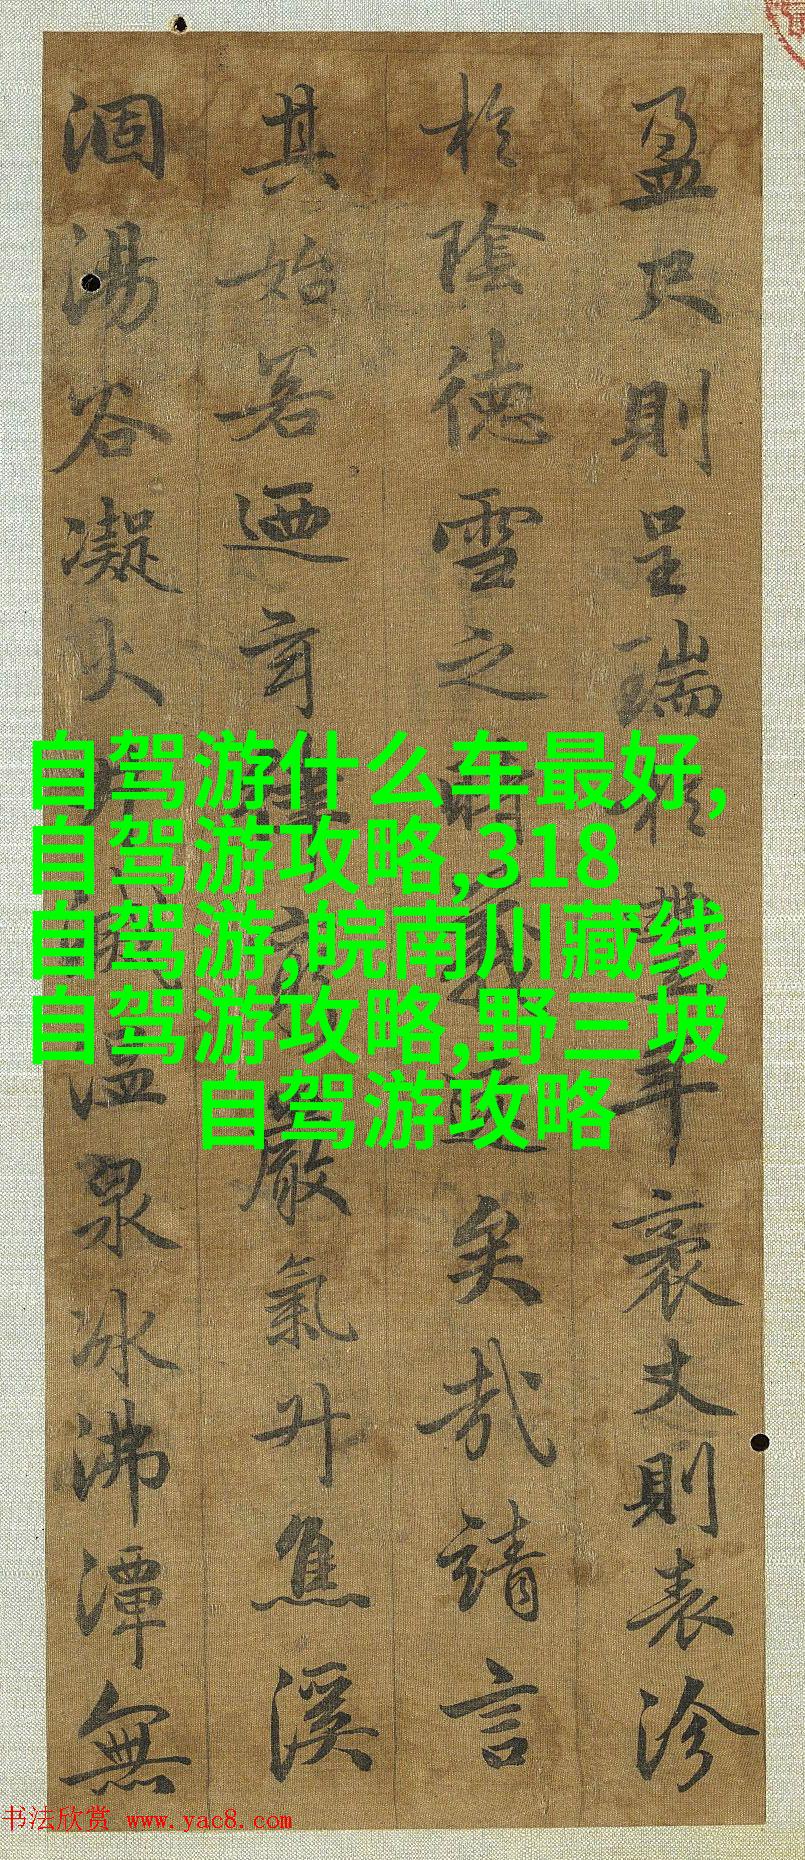 盈尺則呈瑞於豐年袤丈則表沴
於陰德雪之時義遠矣哉請言
其始若迺玄律窮嚴氣升焦溪
涸湯谷凝火井滅溫泉冰沸潭無
自驾游什么车最好,
自驾游攻略,318
自驾游,皖南川藏线
自驾游攻略,野三坡
自驾游攻略
书法欣赏 www.yac8.com